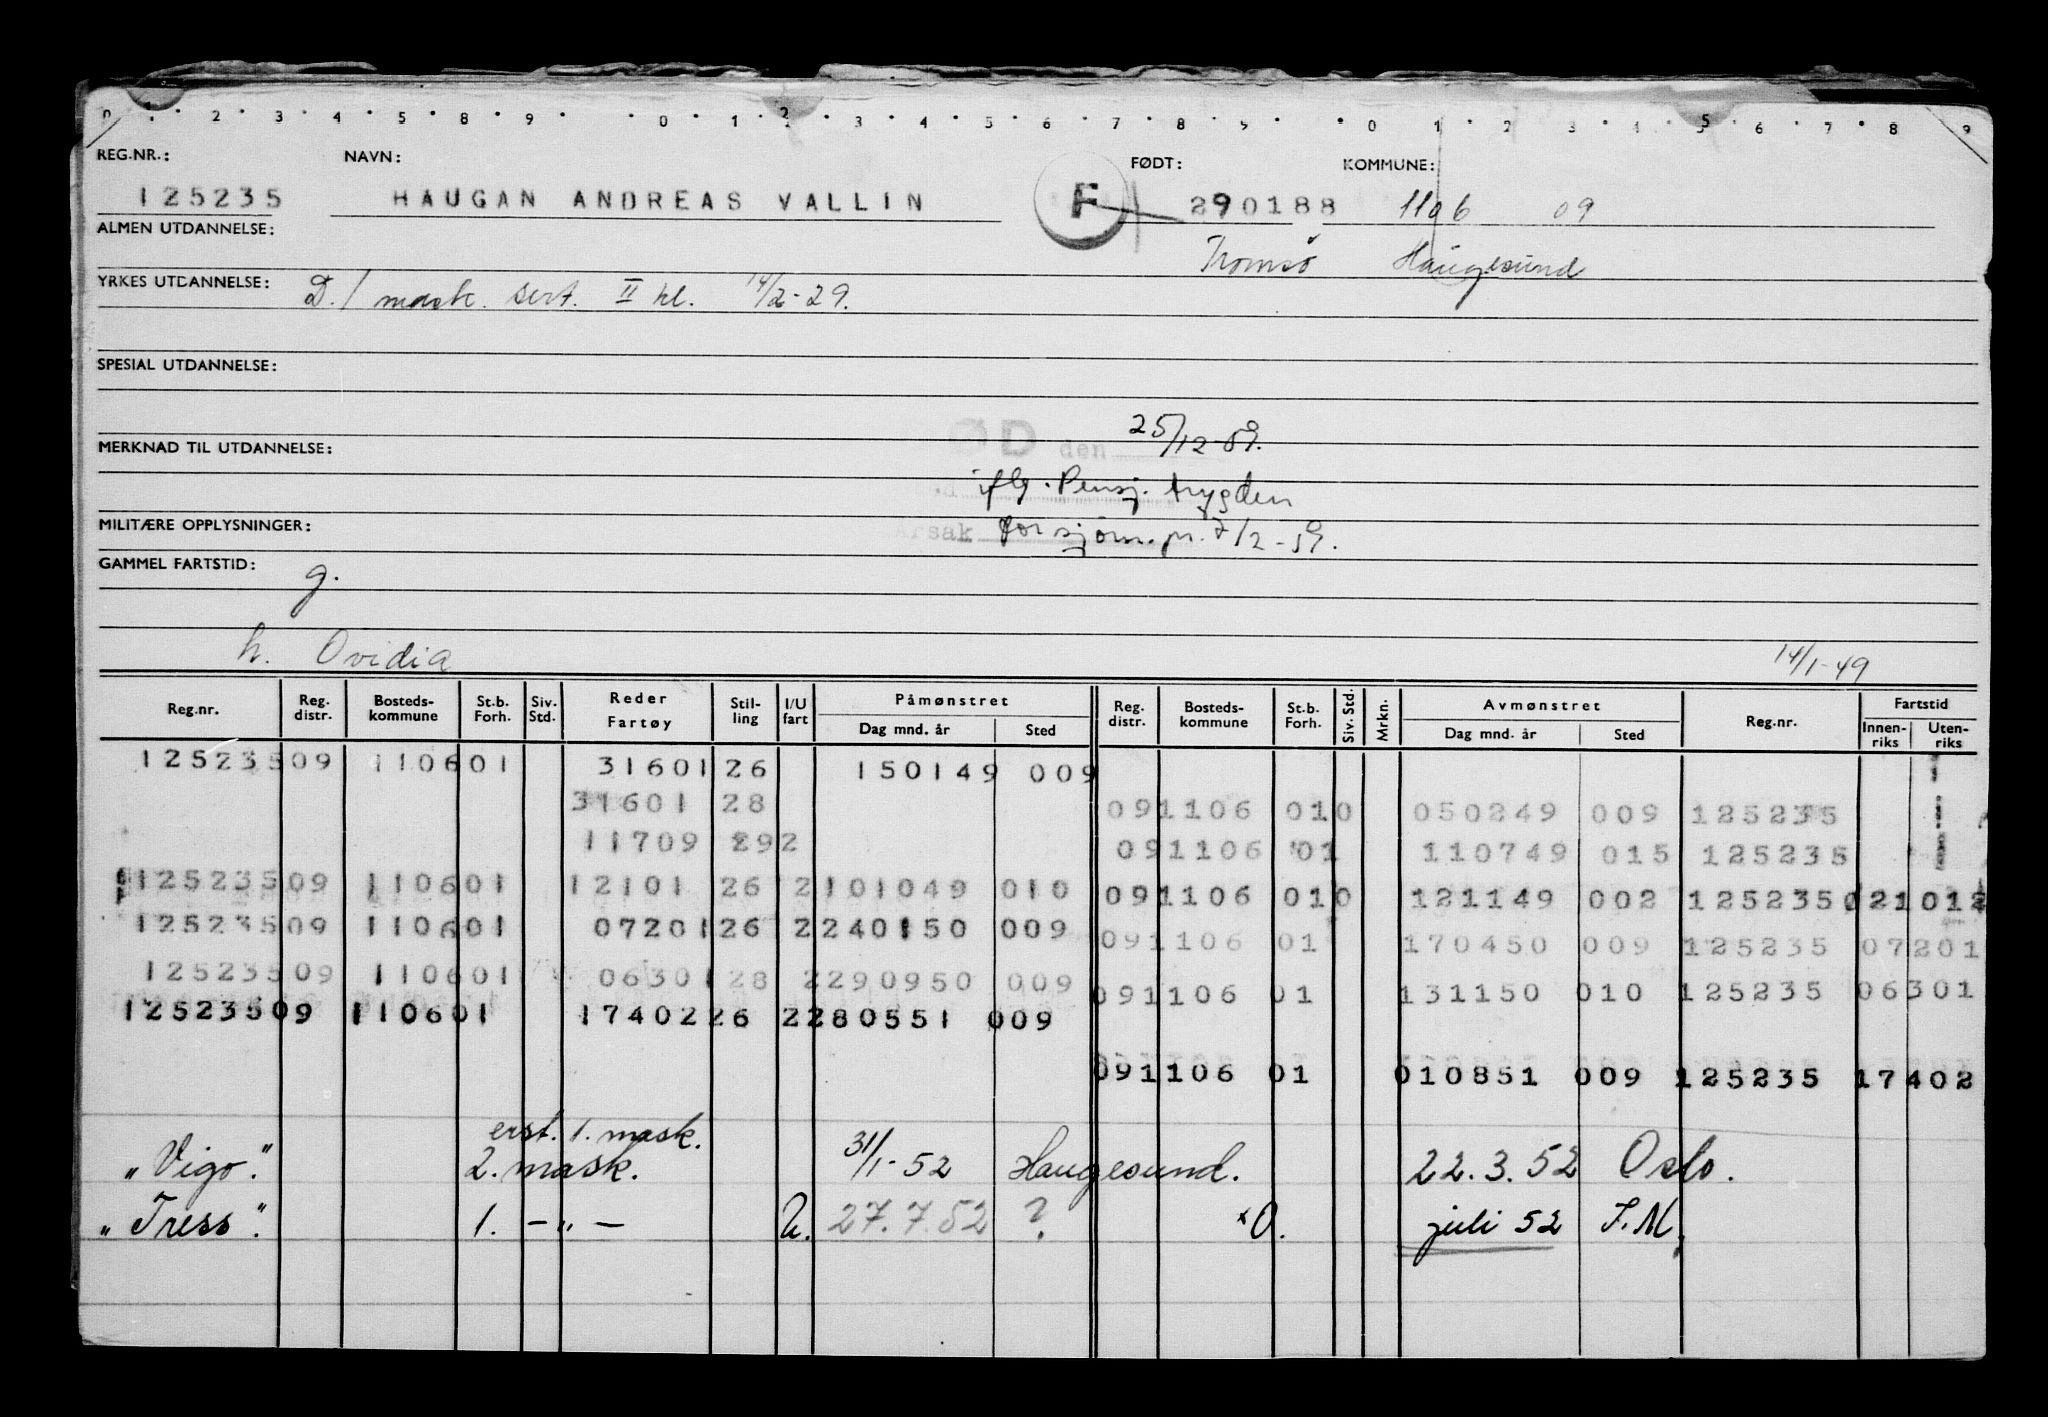 0 1 2 3 4 5 8 9 0 1 2 3 4 5 6 7 8 9 0 1 2 3 4 5 6 7 8 9
REG.NR.: NAVN: FØDT: KOMMUNE:
125235 HAUGAN ANDREAS VALLIN F 290188 1106 09
ALMEN UTDANNELSE: Tromsø Haugesund
YRKES UTDANNELSE: D./mask. sert. II kl. 14/2-29.
SPESIAL UTDANNELSE:
ØD den 25/12-59.
MERKNAD TIL UTDANNELSE:
iflg. Pensj. trygden
MILITÆRE OPPLYSNINGER: Årsak for sjöm. pr. 7/2-59.
GAMMEL FARTSTID: g.
h. Ovidia 14/1-49
Reg.nr. Reg. distr. Bosteds-kommune St.b. Forh. Siv. Std. Reder Fartøy Stil-ling I/U fart Påmønstret Dag mnd. år Sted Reg. distr. Bosteds-kommune St.b. Forh. Siv. Std. Mrkn. Avmønstret Dag mnd. år Sted Reg.nr. Fartstid Innen-riks Uten-riks
12523509 110601 3160126 150149 009
31601 28 091106 010 050249 009 125235
11709 292 091106 01 110749 015 125235
12523509 110601 12101 26 2101049 010 091106 010 121149 002 125235 021012
12523509 110601 0720126 2240150 009 091106 01 170450 009 125235 07201
12523509 110601 0630128 2290950 009 091106 01 131150 010 125235 06301
12523509 110601 1740226 2280551 009
091106 01 010851 009 125235 17402
erst. 1. mask.
"Vigo". 2. mask. 31/1-52 Haugesund. 22.3.52 Oslo.
"Tress". 1. -"- U. 27.7.52 ? xO. juli 52 S.M.